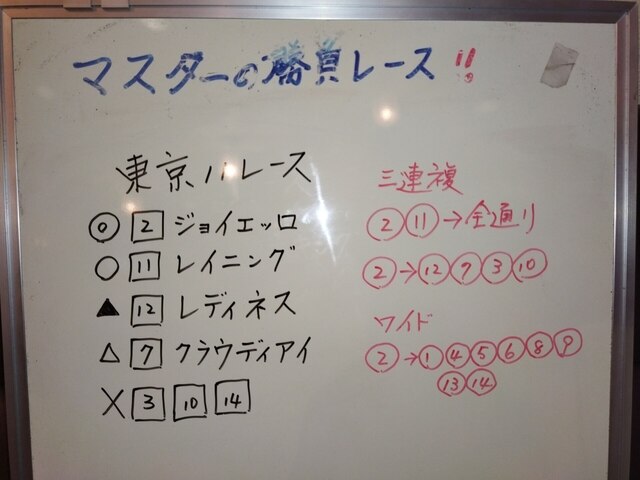 マスターの勝負レース!!
東京11レース
◎ 2 ジョイエッロ
○ 11 レイニング
▲ 12 レディネス
△ 7 クラウディアイ
× 3 10 14
三連複
② ⑪ → 全通り
② → ⑫ ⑦ ③ ⑩
ワイド
② → ① ④ ⑤ ⑥ ⑧ ⑨
⑬ ⑭